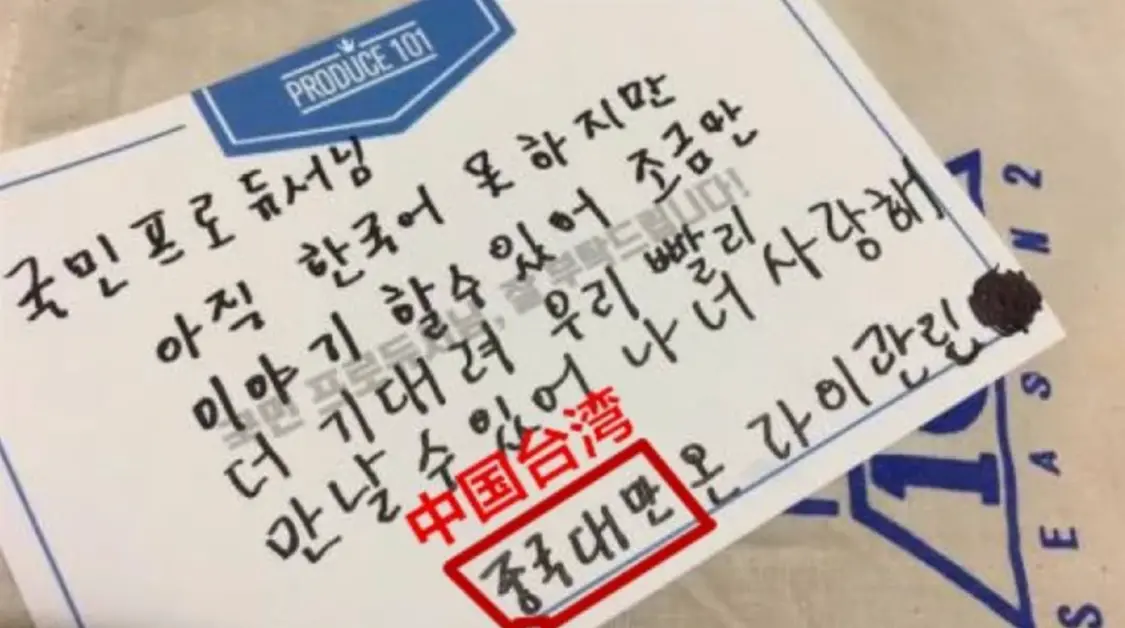 PRODUCE 101
국민프로듀서님
아직 한국어 못하지만
이야기 할수있어 조금만
더 기대려 우리 빨리
만날수있어 나 너 사랑해
중국대만 온 라이관린
국민 프로듀서님, 잘 부탁드립니다!
中国台湾
10
SEASON2